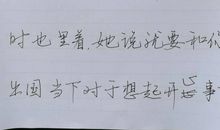 时也里着,她说就要和你
出国 当下对于想起开心事